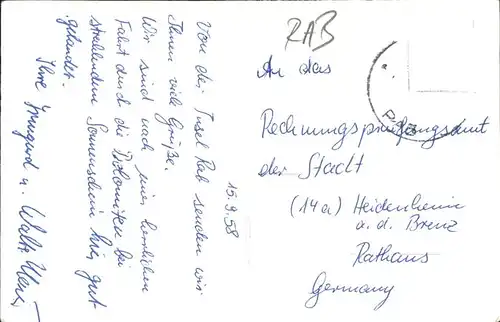 RAB
15.9.58
Von der Insel Rab senden wir
Ihnen viele Grüße.
Wir sind nach einer herrlichen
Fahrt durch die Dolomiten bei
strahlendem Sonnenschein hier gut
gelandet.
Ihre Irmgard u. Walter
An das
Rechnungsprüfungsamt
der Stadt
(14a) Heidenheim
a. d. Brenz
Rathaus
Germany